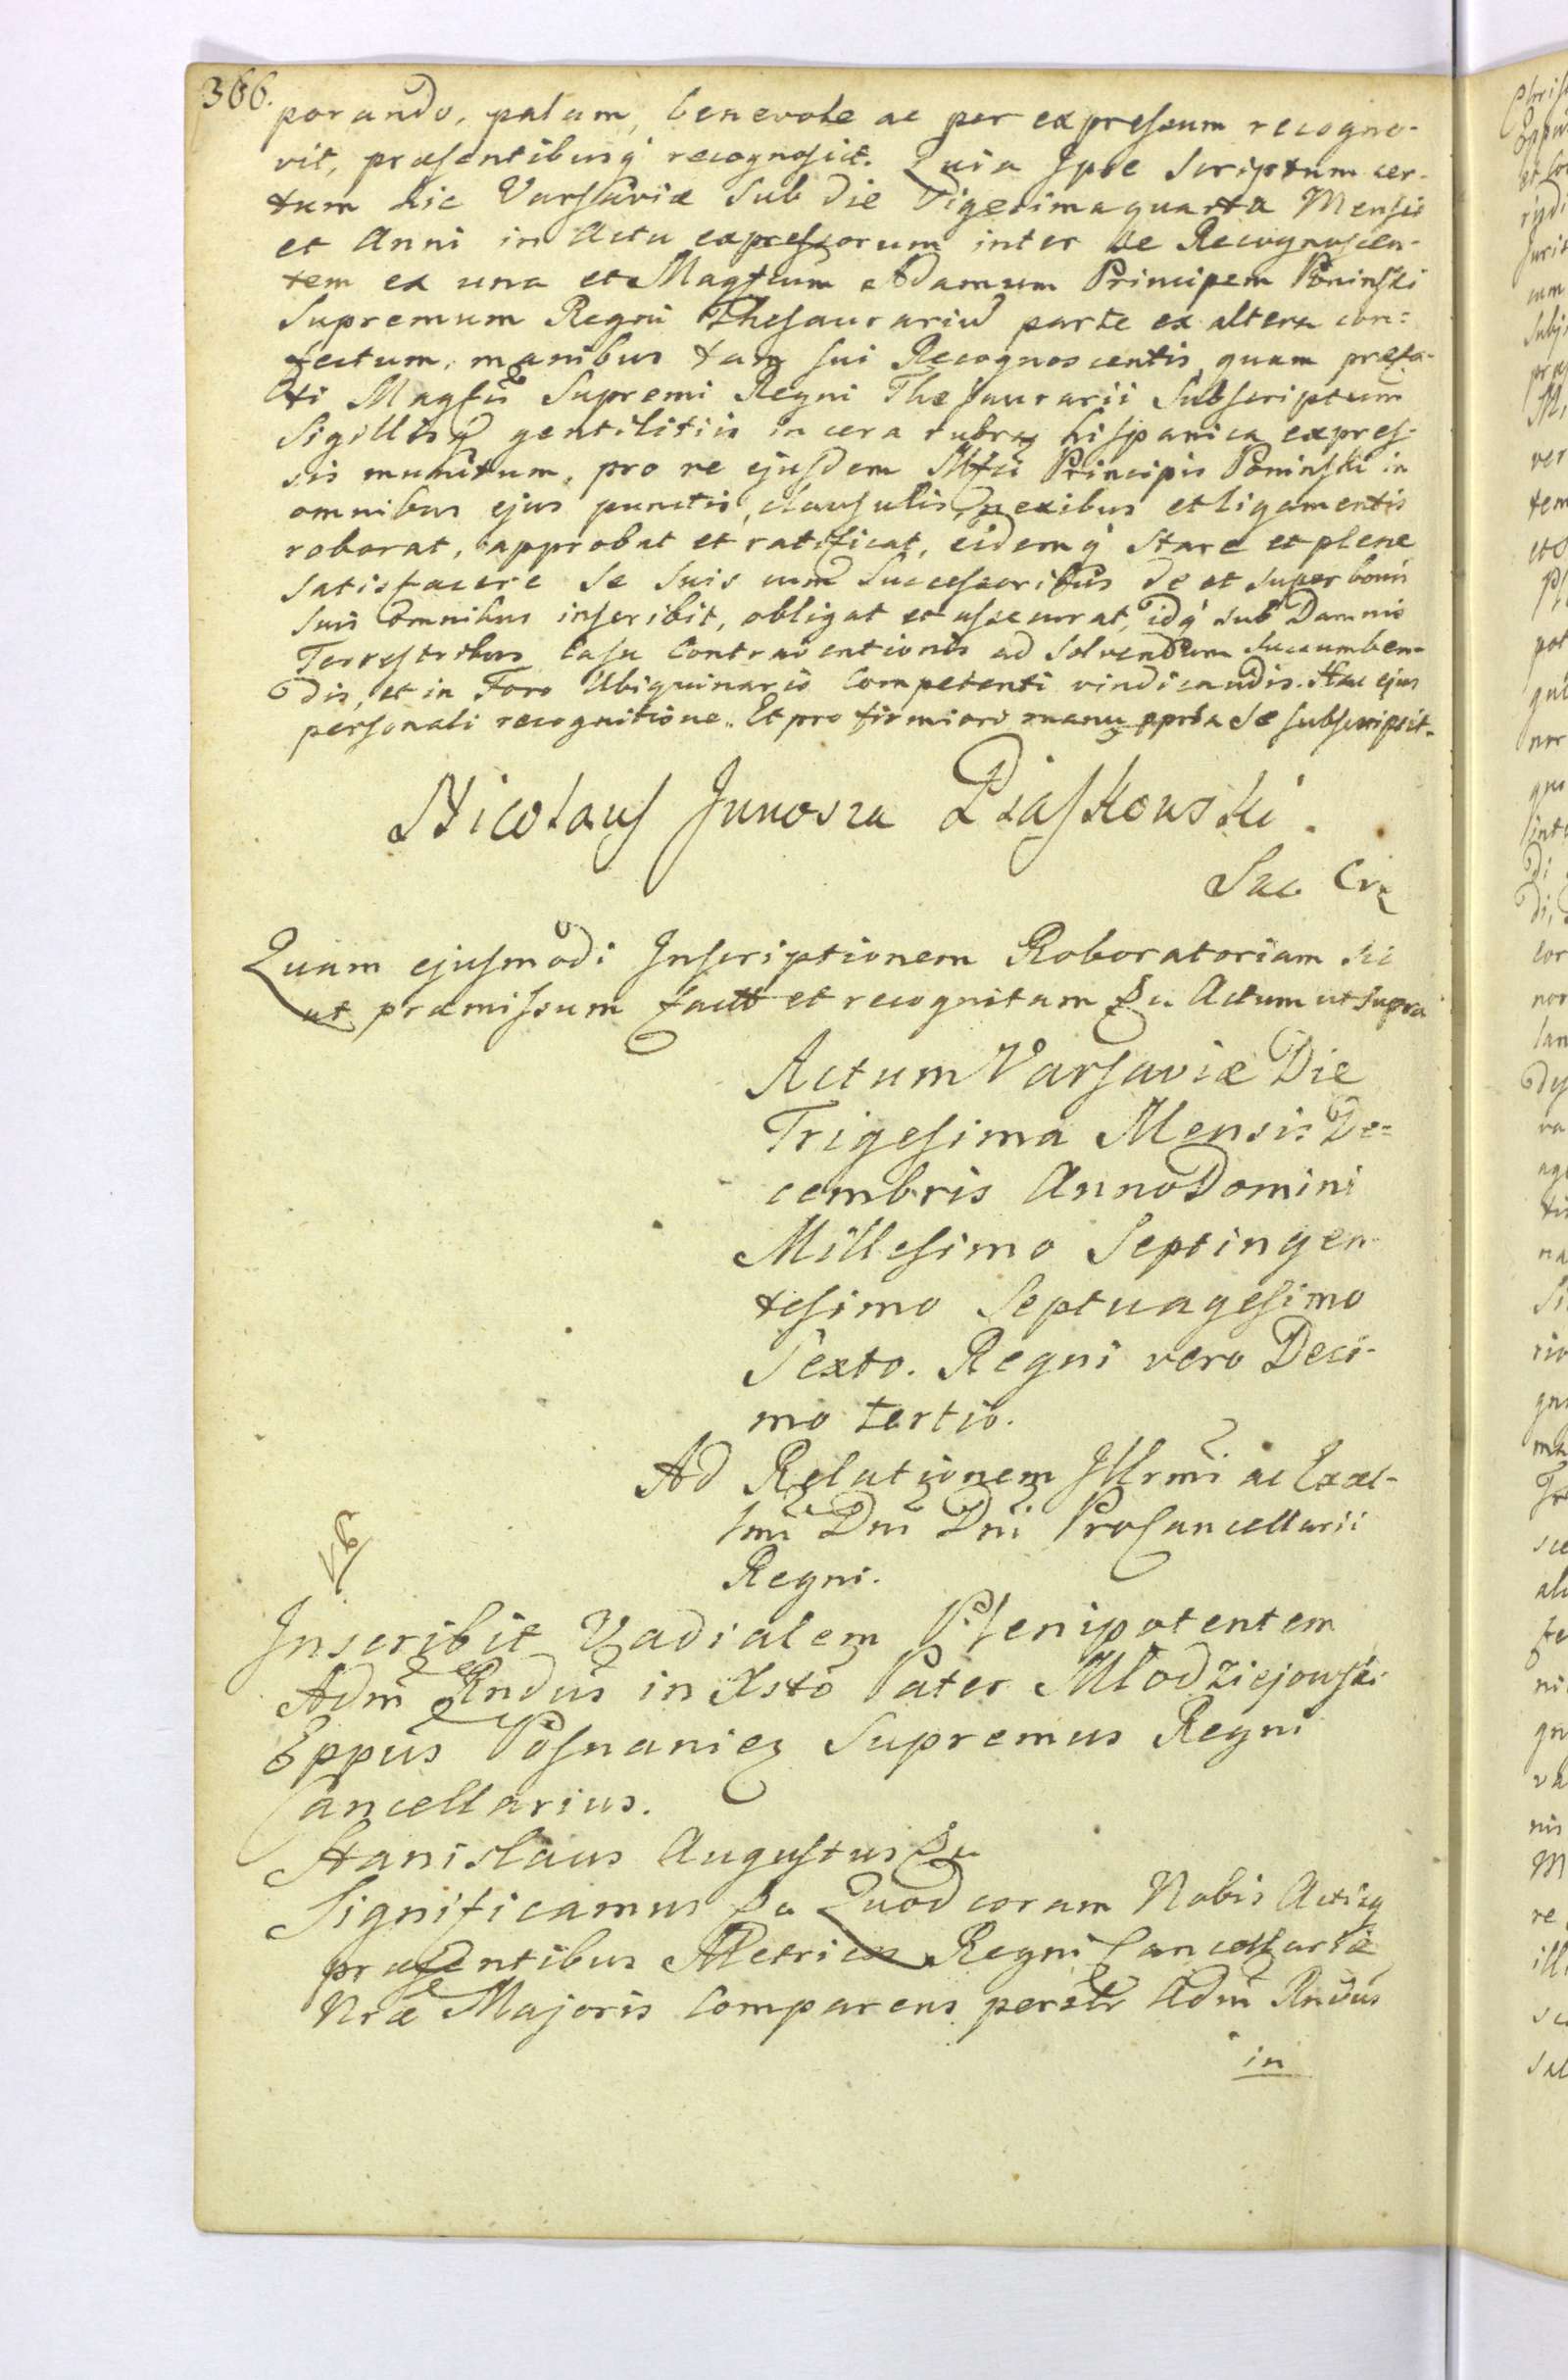 366.
porando, palam, benevole ac per expressum recogno-
vit, præsentibusq́ recognoscit. Quia Ipse Scriptum cer-
tum hic Varsaviæ Sub Die Vigesimaquarta Mensis
et Anni in Actu expressorum inter se Recognoscen-
tem ex una et Magfcum Adamum Principem Poninski
Supremum Regni Thesaurariū parte ex altera con=
fectum, manibus tam sui Recognoscentis, quam præfa-
ti Magfci Supremi Regni Thesaurarii Subscriptum
Sigillisq gentilitiis in cera rubra hispanica expres-
sis munitum, pro re ejusdem Mfci Principis Poninski in
omnibus ejus punctis, clausulis, nexibus et ligamentis
roborat, approbat et ratificat, eidemq́ stare et plene
satisfacere se suis cum Successoribus de et super bonis
suis omnibus inscribit, obligat et assecurat, idq́ sub Damnis
Terrestribus casu Contraventionis ad solvendum succumben-
dis, et in Foro Ubiquinario Competenti vindicandis. Hac ejus
personali recognitione. Et pro firmiori manu ppria se subscripsit.
Nicolaus Junosza Piaskowski.
Quam ejusmodi Inscriptionem Roboratoriam sic
ut præmissum factā et recognitam &a Actum ut supra
Actum Varsaviæ Die
Trigesima Mensis De=
cembris Anno Domini
Millesimo Septingen-
tesimo Septuagesimo
Sexto. Regni vero Deci-
mo tertio.
Ad Relationem Illrmi ac Excel-
lmi Dni Dni ProCancellarii
Regni.
Inscribit Vadialem Plenipotentem
Adm̃ Rndus in Xsto Pater Młodziejowski
Eppus Posnanien Supremus Regni
Cancellarius.
Stanislaus Augustus &a
Significamus &a Quod coram Nobis Actisq
præsentibus Metrices Regni Cancellariæ
Nræ Majoris Comparens persltr Adm̃ Rndus
in